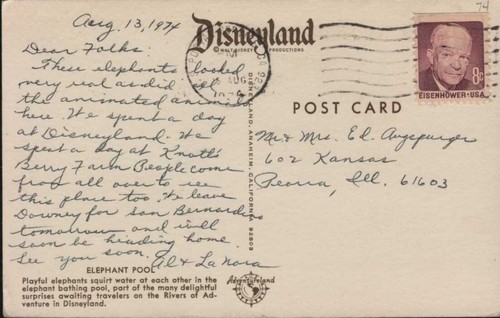 Aug. 13, 1974
74
Disneyland
© WALT DISNEY PRODUCTIONS
Dear Folks:
These elephants looked
very real as did all
the animated animals
here. We spent a day
at Disneyland. We
spent a day at Knott's
Berry Farm People come
from all over to see
this place too. We leave
Downey for San Bernardino
tomorrow and will
soon be heading home.
See you soon.
Al & La Nora
ELEPHANT POOL
Playful elephants squirt water at each other in the
elephant bathing pool, part of the many delightful
surprises awaiting travelers on the Rivers of Ad-
venture in Disneyland.
Adventureland
DISNEYLAND, ANAHEIM, CALIFORNIA 92803
8¢
EISENHOWER·USA
POST CARD
Mr & Mrs. Ed. Augspurger
602 Kansas
Peoria, Ill. 61603